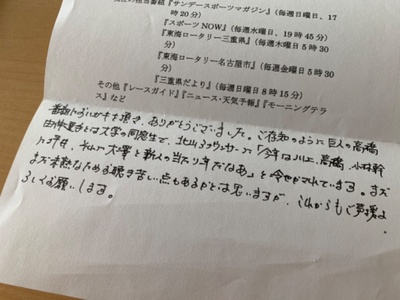 『サンデースポーツマガジン』(毎週日曜日、17
時20分)
『スポーツNOW』(毎週木曜日、19時45分)
『東海ロータリー三重県』(毎週木曜日5時30
分)
『東海ロータリー名古屋市』(毎週金曜日5時30
分)
『三重県だより』(毎週日曜日8時15分)
その他『レースガイド』『ニュース・天気予報』『モーニングテラ
ス』など
番組におハガキを頂き、ありがとうございました。ご存知のように巨人の高橋
由伸選手とは大学の同期生で、北山アナウンサーに「今年は川上、高橋、小林幹
に戸井、そして大澤と新人の当たり年だなあ」と冷やかされています。まだ
まだ未熟なため聴き苦しい点もあるかとは思いますが、これからもご声援よ
ろしくお願いします。